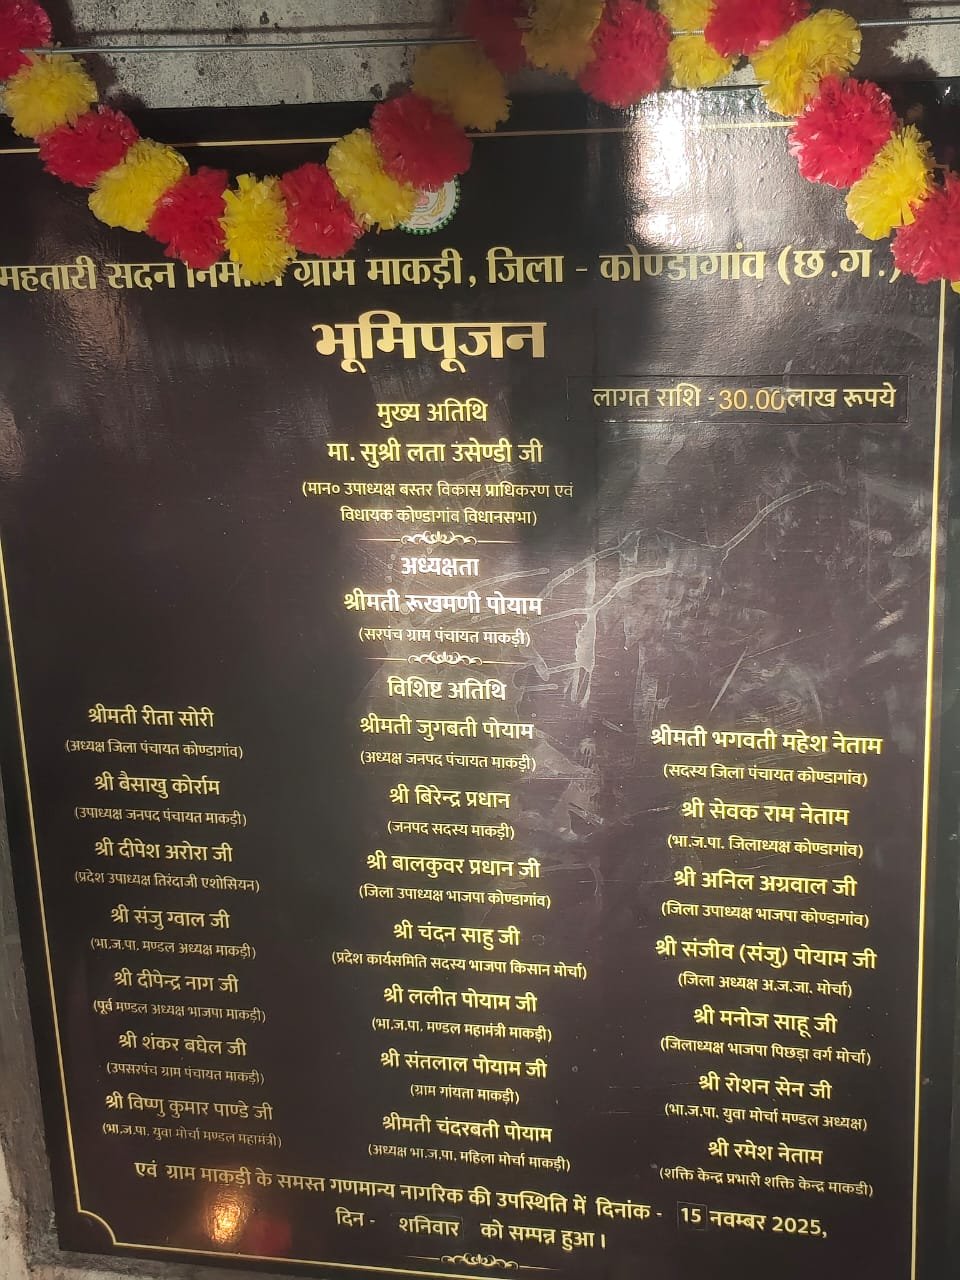 महतारी सदन निर्माण ग्राम माकड़ी, जिला - कोण्डागांव (छ.ग.)
भूमिपूजन
लागत राशि - 30.00 लाख रूपये
मुख्य अतिथि
मा. सुश्री लता उसेण्डी जी
(मान० उपाध्यक्ष बस्तर विकास प्राधिकरण एवं
विधायक कोण्डागांव विधानसभा)
अध्यक्षता
श्रीमती रूखमणी पोयाम
(सरपंच ग्राम पंचायत माकड़ी)
विशिष्ट अतिथि
श्रीमती रीता सोरी
(अध्यक्ष जिला पंचायत कोण्डागांव)
श्री बैसाखु कोर्राम
(उपाध्यक्ष जनपद पंचायत माकड़ी)
श्री दीपेश अरोरा जी
(प्रदेश उपाध्यक्ष तिरंदाजी एशोसियन)
श्री संजु ग्वाल जी
(भा.ज.पा. मण्डल अध्यक्ष माकड़ी)
श्री दीपेन्द्र नाग जी
(पूर्व मण्डल अध्यक्ष भाजपा माकड़ी)
श्री शंकर बघेल जी
(उपसरपंच ग्राम पंचायत माकड़ी)
श्री विष्णु कुमार पाण्डे जी
(भा.ज.पा. युवा मोर्चा मण्डल महामंत्री)
श्रीमती जुगबती पोयाम
(अध्यक्ष जनपद पंचायत माकड़ी)
श्री बिरेन्द्र प्रधान
(जनपद सदस्य माकड़ी)
श्री बालकुवर प्रधान जी
(जिला उपाध्यक्ष भाजपा कोण्डागांव)
श्री चंदन साहु जी
(प्रदेश कार्यसमिति सदस्य भाजपा किसान मोर्चा)
श्री ललीत पोयाम जी
(भा.ज.पा. मण्डल महामंत्री माकड़ी)
श्री संतलाल पोयाम जी
(ग्राम गांयता माकड़ी)
श्रीमती चंदरबती पोयाम
(अध्यक्ष भा.ज.पा. महिला मोर्चा माकड़ी)
श्रीमती भगवती महेश नेताम
(सदस्य जिला पंचायत कोण्डागांव)
श्री सेवक राम नेताम
(भा.ज.पा. जिलाध्यक्ष कोण्डागांव)
श्री अनिल अग्रवाल जी
(जिला उपाध्यक्ष भाजपा कोण्डागांव)
श्री संजीव (संजु) पोयाम जी
(जिला अध्यक्ष अ.ज.जा. मोर्चा)
श्री मनोज साहू जी
(जिलाध्यक्ष भाजपा पिछड़ा वर्ग मोर्चा)
श्री रोशन सेन जी
(भा.ज.पा. युवा मोर्चा मण्डल अध्यक्ष)
श्री रमेश नेताम
(शक्ति केन्द्र प्रभारी शक्ति केन्द्र माकडी)
एवं ग्राम माकड़ी के समस्त गणमान्य नागरिक की उपस्थिति में दिनांक - 15 नवम्बर 2025,
दिन - शनिवार को सम्पन्न हुआ।